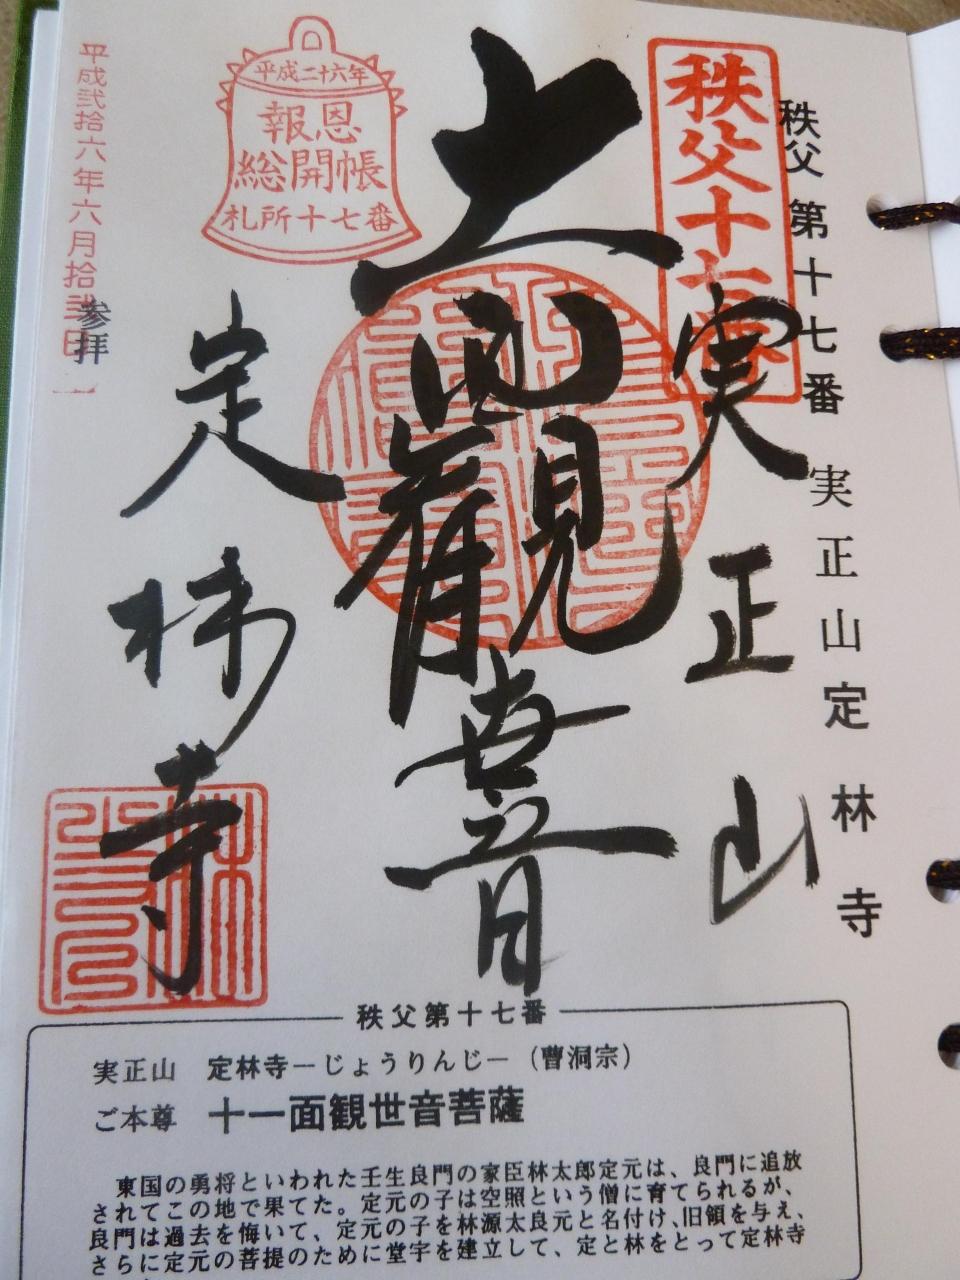 秩父第十七番　実正山定林寺
秩父十七番
実正山
十一面觀世音
定林寺
平成二十六年
報恩
総開帳
札所十七番
平成弐拾六年六月拾弐日
参拝
秩父第十七番
実正山　定林寺－じょうりんじ－（曹洞宗）
ご本尊　十一面観世音菩薩
東国の勇将といわれた壬生良門の家臣林太郎定元は、良門に追放
されてこの地で果てた。定元の子は空照という僧に育てられるが、
良門は過去を悔いて、定元の子を林源太良元と名付け、旧領を与え、
さらに定元の菩提のために堂宇を建立して、定と林をとって定林寺